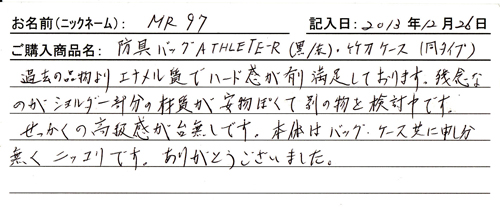 お名前(ニックネーム): MR 97 記入日: 2013年12月26日
ご購入商品名: 防具バッグATHLETE-R(黒/左)・竹刀ケース(同タイプ)
過去の品物より エナメル質でハード感が有り満足しております。残念な
のが ショルダー部分の材質が 安物ぽくて 別の物を検討中です。
せっかくの高級感が台無しです。本体は バッグ・ケース共に申し分
無く ニッコリです。ありがとうございました。